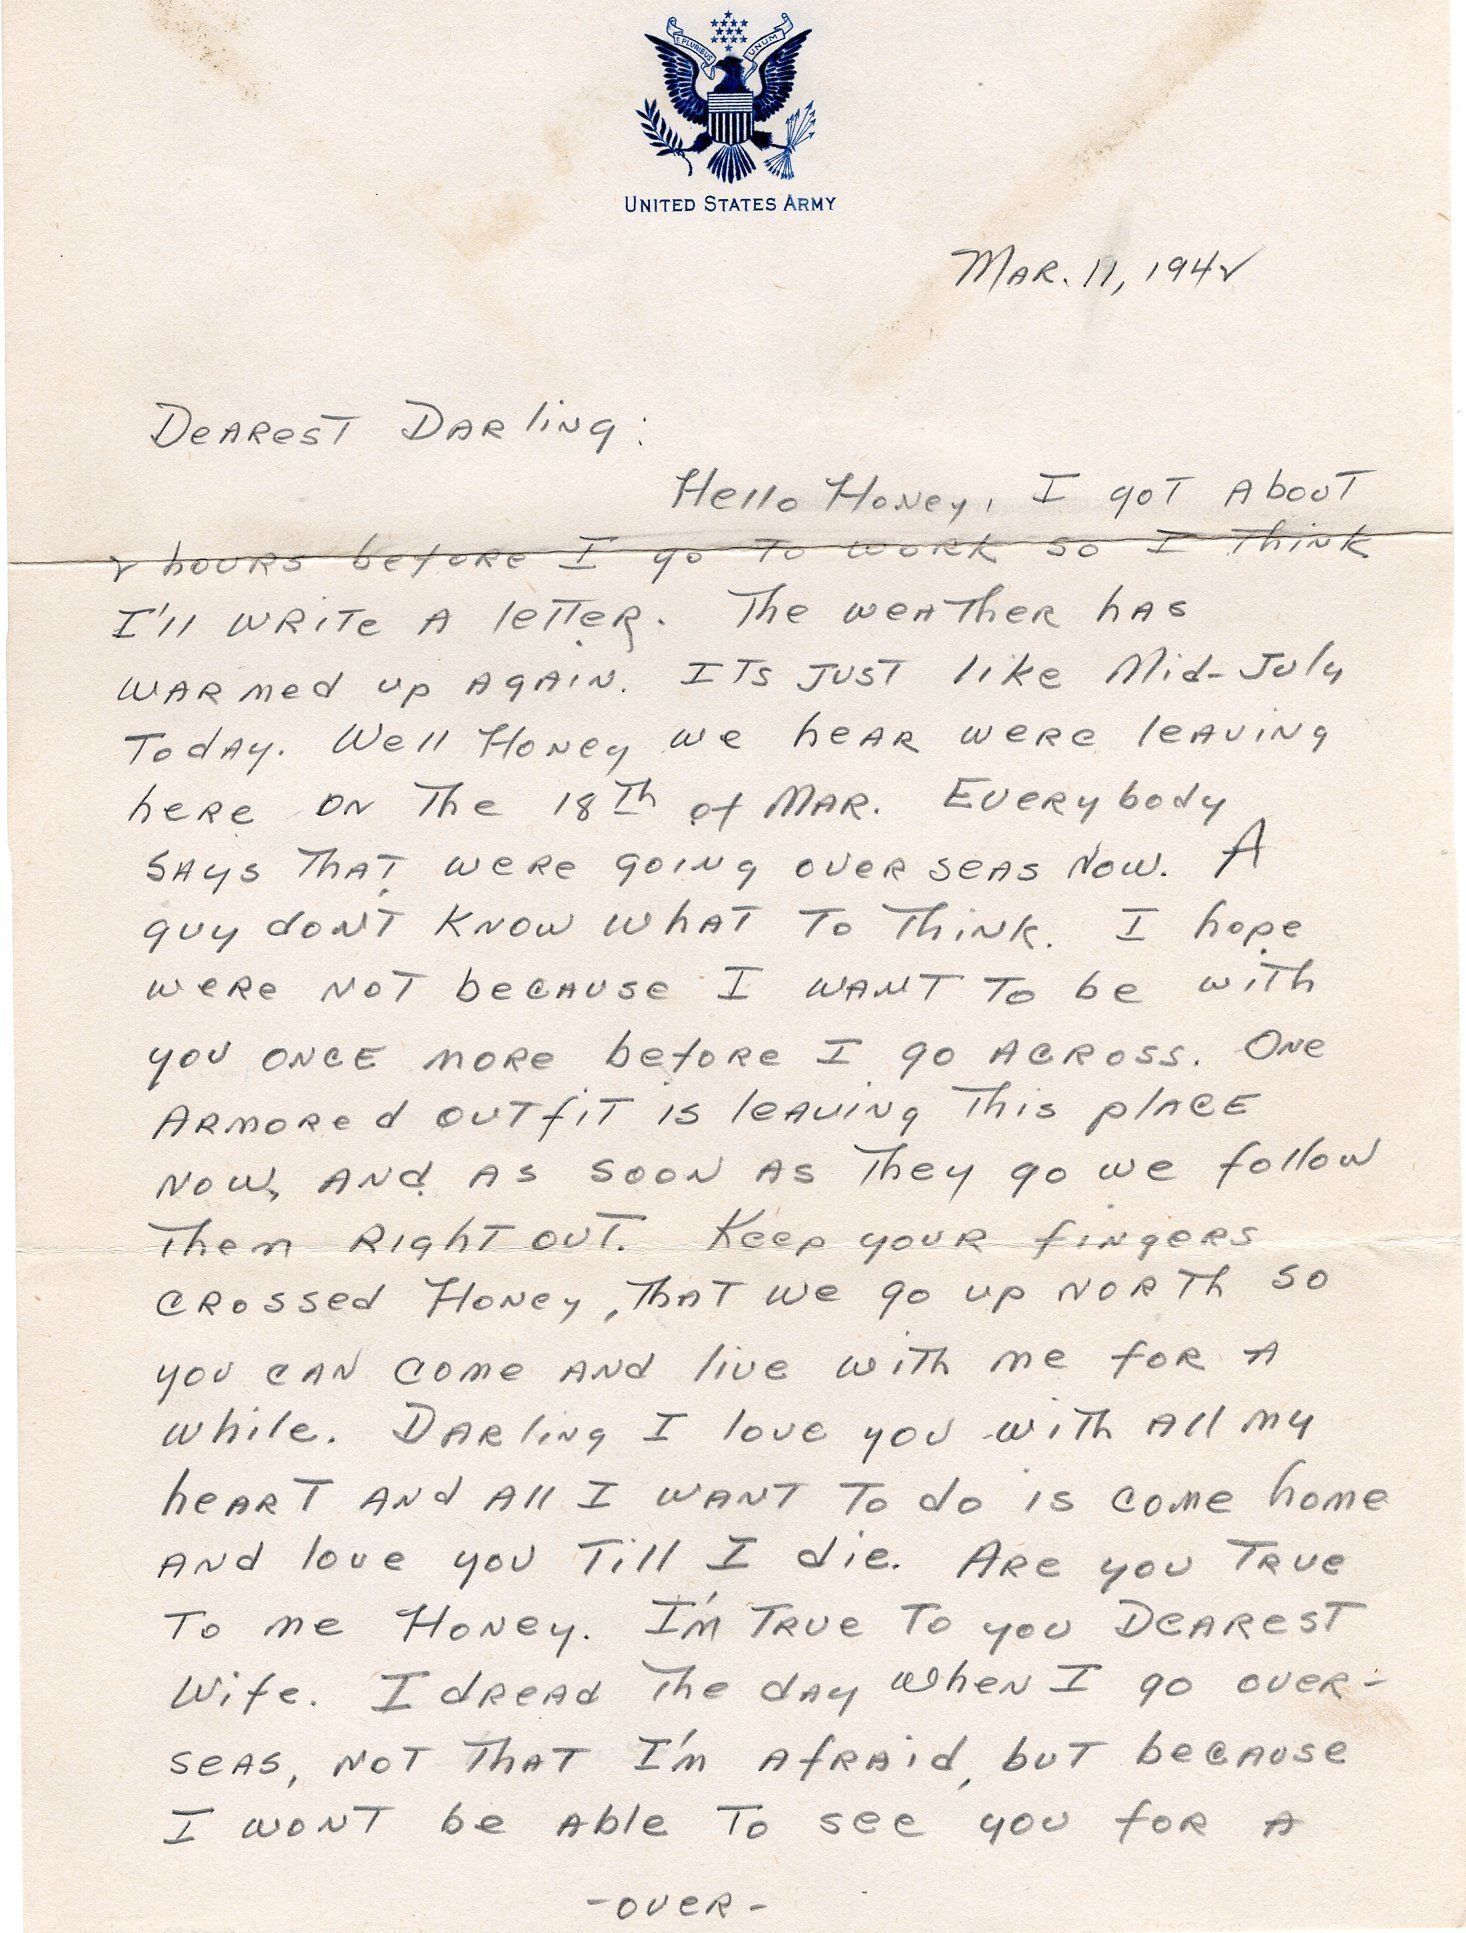 E PLURIBUS UNUM
UNITED STATES ARMY
Mar. 11, 1942
Dearest Darling:
Hello Honey, I got about
2 hours before I go to work so I think
I'll write a letter. The weather has
warmed up again. Its just like Mid-July
today. Well Honey we hear were leaving
here on the 18th of Mar. Everybody
says that were going over seas now. A
guy don't know what to think. I hope
were not because I want to be with
you once more before I go across. One
armored outfit is leaving this place
now, and as soon as they go we follow
them right out. Keep your fingers
crossed Honey, that we go up north so
you can come and live with me for a
while. Darling I love you with all my
heart and all I want to do is come home
and love you till I die. Are you true
to me Honey. I'm true to you Dearest
Wife. I dread the day when I go over-
seas, not that I'm afraid, but because
I wont be able to see you for a
-over-